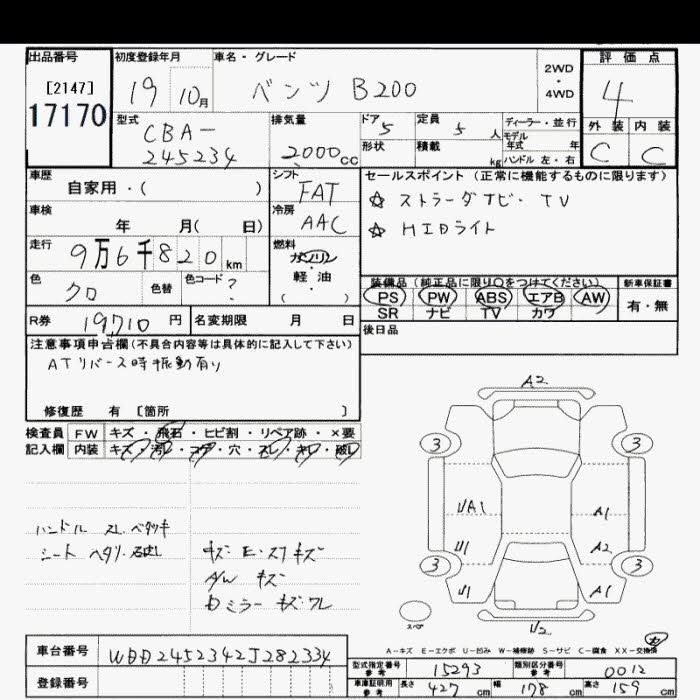 出品番号 初度登録年月 車名・グレード 2WD ・ 4WD 評価点
[2147] 19 10月 ベンツ B200 4
17170 型式 排気量 ドア 定員 ディーラー・並行 外装 内装
CBA- 5 5 人 モデル年式 年
245234 2000cc 形状 積載 kg ハンドル 左・右 C C
車歴 シフト セールスポイント (正常に機能するものに限ります)
自家用・( ) FAT ☆ ストラーダナビ・TV
車検 冷房 ☆ HIDライト
年 月( 日) AAC
走行 燃料
9万6千820km ガソリン
・
色 色替 色コード 軽油 装備品 (純正品に限り○をつけてください) 新車保証書
クロ ? ( ) PS PW ABS エアB AW 有・無
SR ナビ TV カワ
R券 19,710 円 名変期限 月 日 後日品
注意事項申告欄(不具合内容等は具体的に記入して下さい)
ATリバース時振動有り
修復歴 有 [箇所 ]
検査員 FW キズ・飛石・ヒビ割・リペア跡・×要
記入欄 内装 キズ・汚レ・コゲ・穴・スレ・キレ・破レ
A2
3 3
A1
A1
U1 A2
3 3
U1 A1
ハンドル スレ ベタツキ
シート ヘタリ・
キズ・E・スリキズ
A/W キズ
ミラー キズ・ワレ
スペア
A-キズ E-エクボ U-凹み W-補修跡 S-サビ C-腐食 XX-交換済
車台番号 WDD2452342J282334
登録番号
型式指定番号 参考 15293 類別区分番号 参考 0012
車庫証明用 参考 長さ 427 cm 幅 178 cm 高さ 159 cm